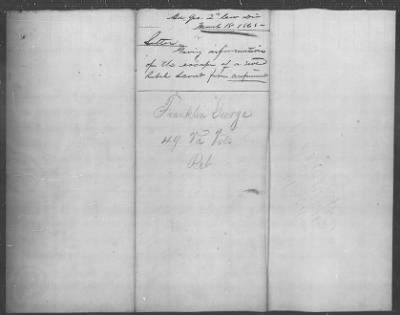 Hd Qrs 2" Cav Div
March 18 1865
Letter
Giving information
of the escape of a
Rebel Scout from confinement
Franklin George
49 Va Vols
Reb